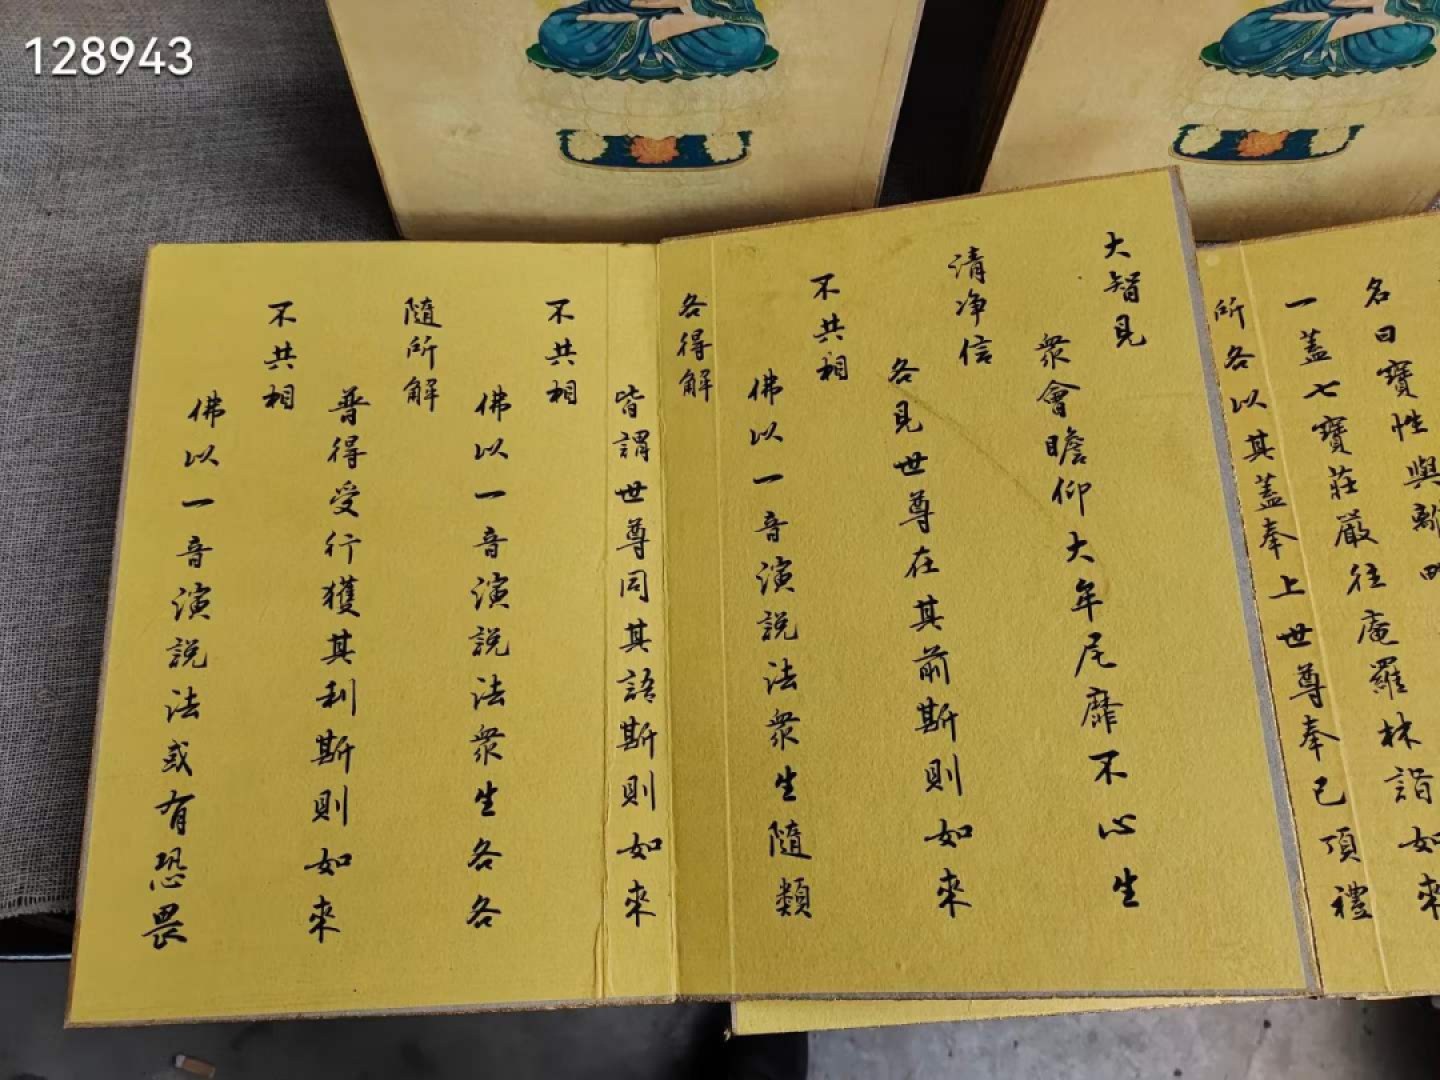 名曰寶性與離
一蓋七寶莊嚴往庵羅林詣如來
所各以其蓋奉上世尊奉已頂禮
大智見
衆會瞻仰大年尼靡不心生
清净信
各見世尊在其前斯則如來
不共相
佛以一音演說法衆生隨類
各得解
皆謂世尊同其語斯則如來
不共相
佛以一音演說法衆生各各
隨所解
普得受行獲其利斯則如來
不共相
佛以一音演說法或有恐畏
128943